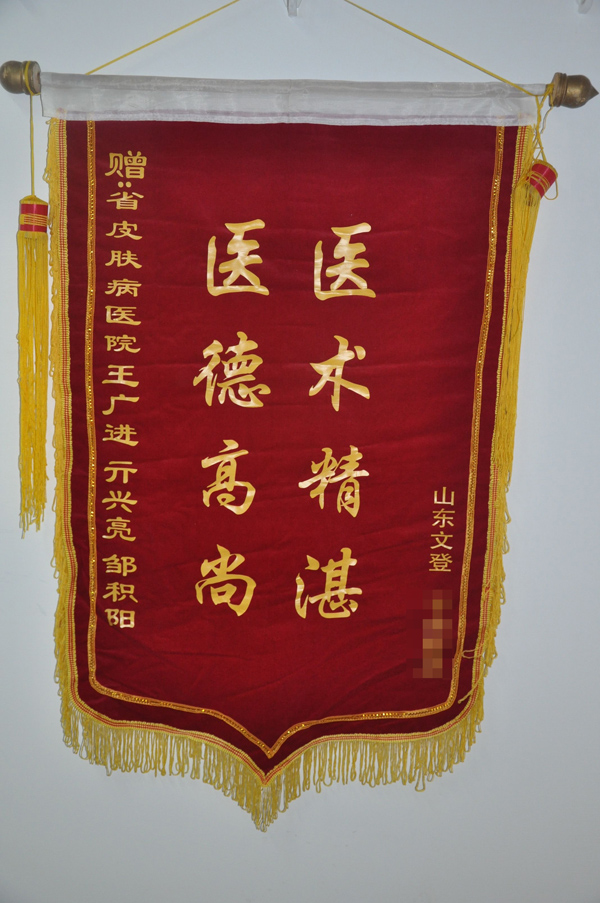 赠:省皮肤病医院王广进 亓兴亮 邹积阳
医德高尚
医术精湛
山东文登